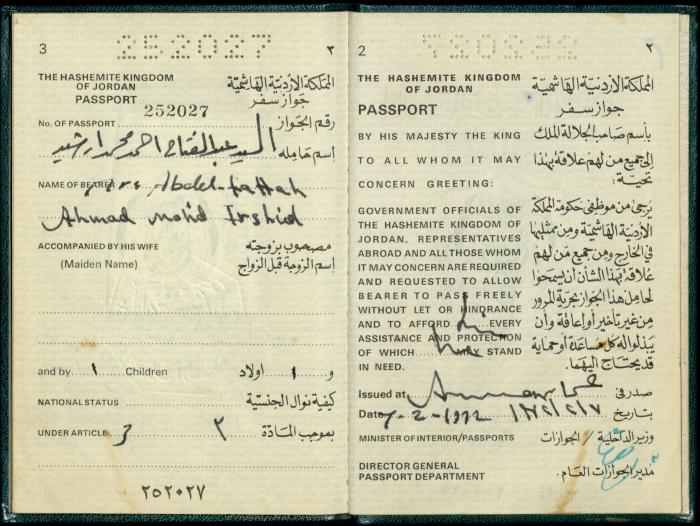 3
252027
٣
THE HASHEMITE KINGDOM
OF JORDAN
PASSPORT
المملكة الأردنية الهاشمية
جواز سفر
No. OF PASSPORT 252027 رقم الجواز
اسم حامله السيد عبد الفتاح احمد محمد ارشيد
NAME OF BEARER Abdel-fattah
Ahmad Mohd Irshid
ACCOMPANIED BY HIS WIFE مصحوب بزوجته
(Maiden Name) إسم الزوجة قبل الزواج
and by ١ Children و ١ اولاد
NATIONAL STATUS كيفية نوال الجنسية
UNDER ARTICLE 3 ٣ بموجب المادة
٢٥٢٠٢٧
2
٢
THE HASHEMITE KINGDOM
OF JORDAN
PASSPORT
BY HIS MAJESTY THE KING
TO ALL WHOM IT MAY
CONCERN GREETING:
GOVERNMENT OFFICIALS OF
THE HASHEMITE KINGDOM OF
JORDAN, REPRESENTATIVES
ABROAD AND ALL THOSE WHOM
IT MAY CONCERN ARE REQUIRED
AND REQUESTED TO ALLOW
BEARER TO PASS FREELY
WITHOUT LET OR HINDRANCE
AND TO AFFORD him EVERY
ASSISTANCE AND PROTECTION
OF WHICH he MAY STAND
IN NEED.
المملكة الأردنية الهاشمية
جواز سفر
بأسم صاحب الجلالة الملك
إلى جميع من لهم علاقة بهذا
تحية:
يرجى من موظفي حكومة المملكة
الأردنية الهاشمية ومن ممثليها
في الخارج ومن جميع من لهم
علاقة بهذا الشأن أن يسمحوا
لحامل هذا الجواز بحرية المرور
من غير تأخير أو إعاقة وأن
يبذلوا له كل مساعدة أو حماية
قد يحتاج اليهما.
Issued at Amman عمان صدر في
Date 7-2-1972 ١٩٧٢/٢/٧ بتاريخ
MINISTER OF INTERIOR/PASSPORTS وزير الداخلية / الجوازات
DIRECTOR GENERAL
PASSPORT DEPARTMENT
مدير الجوازات العام.